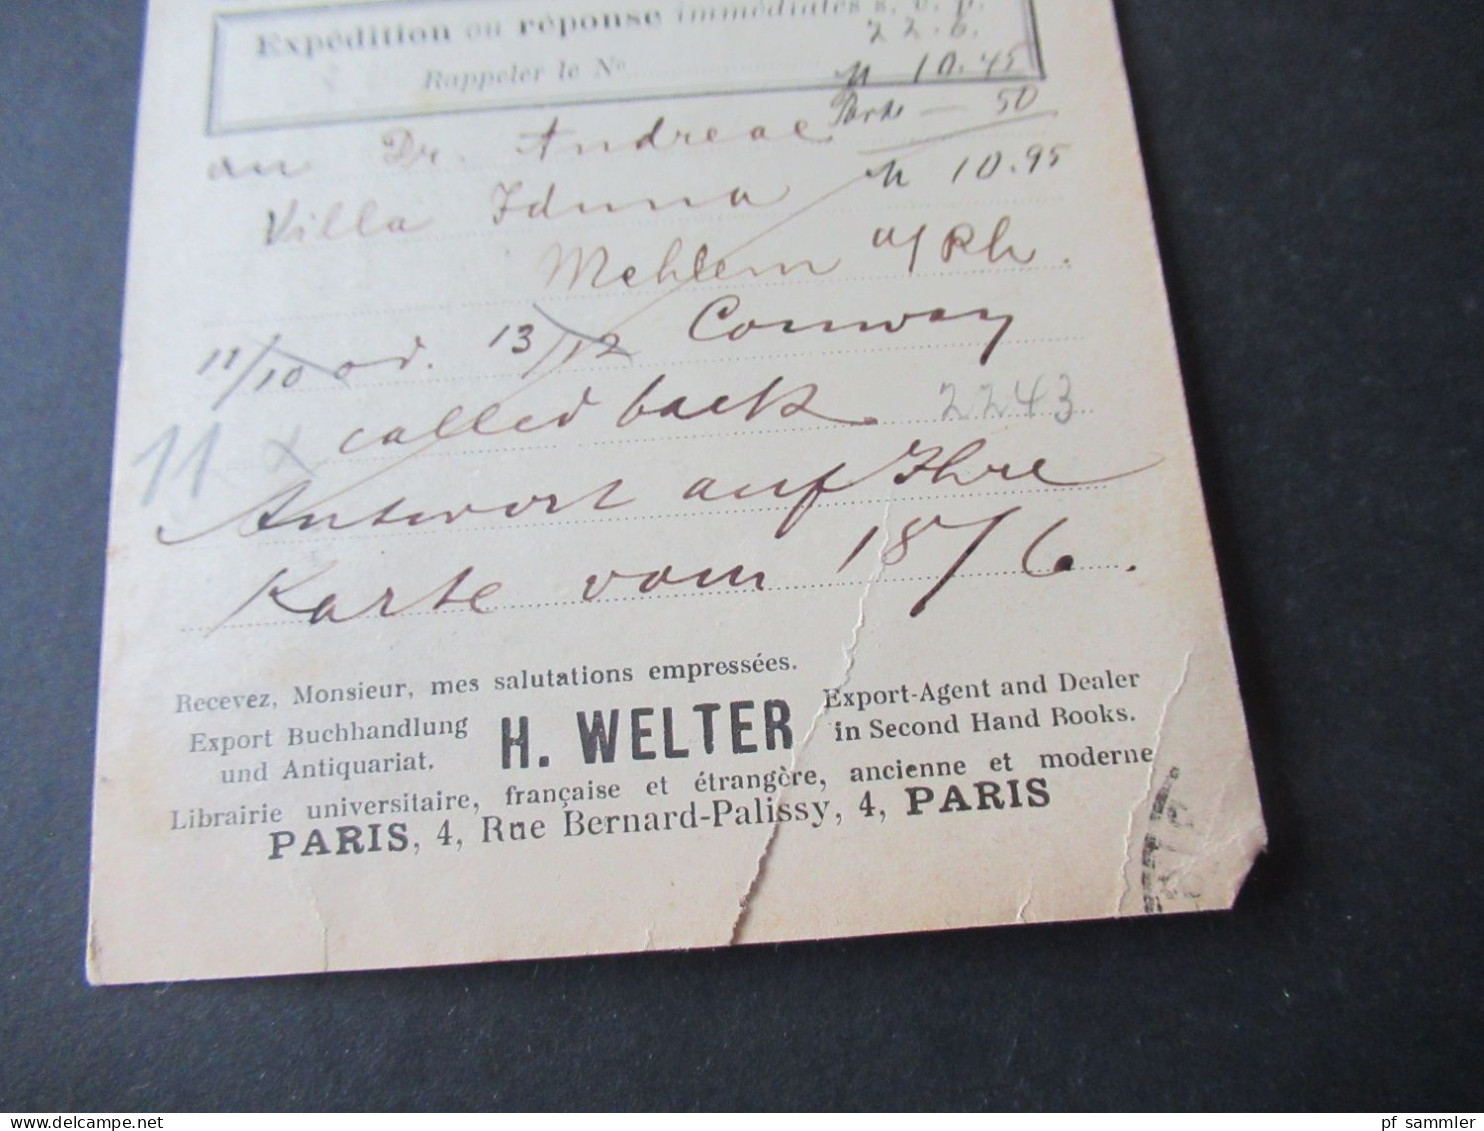 Expédition ou réponse immédiates s. v. p.
Rappeler le No
22.6.
M 10.45
Porto — 50
M 10.95
an Dr. Andreae
Villa Iduna
Mehlem a/Rh.
11/10 od. 13/12 Conway
11 x called back. 2243
Antwort auf Ihre
Karte vom 18/6.
Recevez, Monsieur, mes salutations empressées.
Export Buchhandlung
und Antiquariat.
H. WELTER
Export-Agent and Dealer
in Second Hand Books.
Librairie universitaire, française et étrangère, ancienne et moderne
PARIS, 4, Rue Bernard-Palissy, 4, PARIS
pf sammler ... delcampe.net